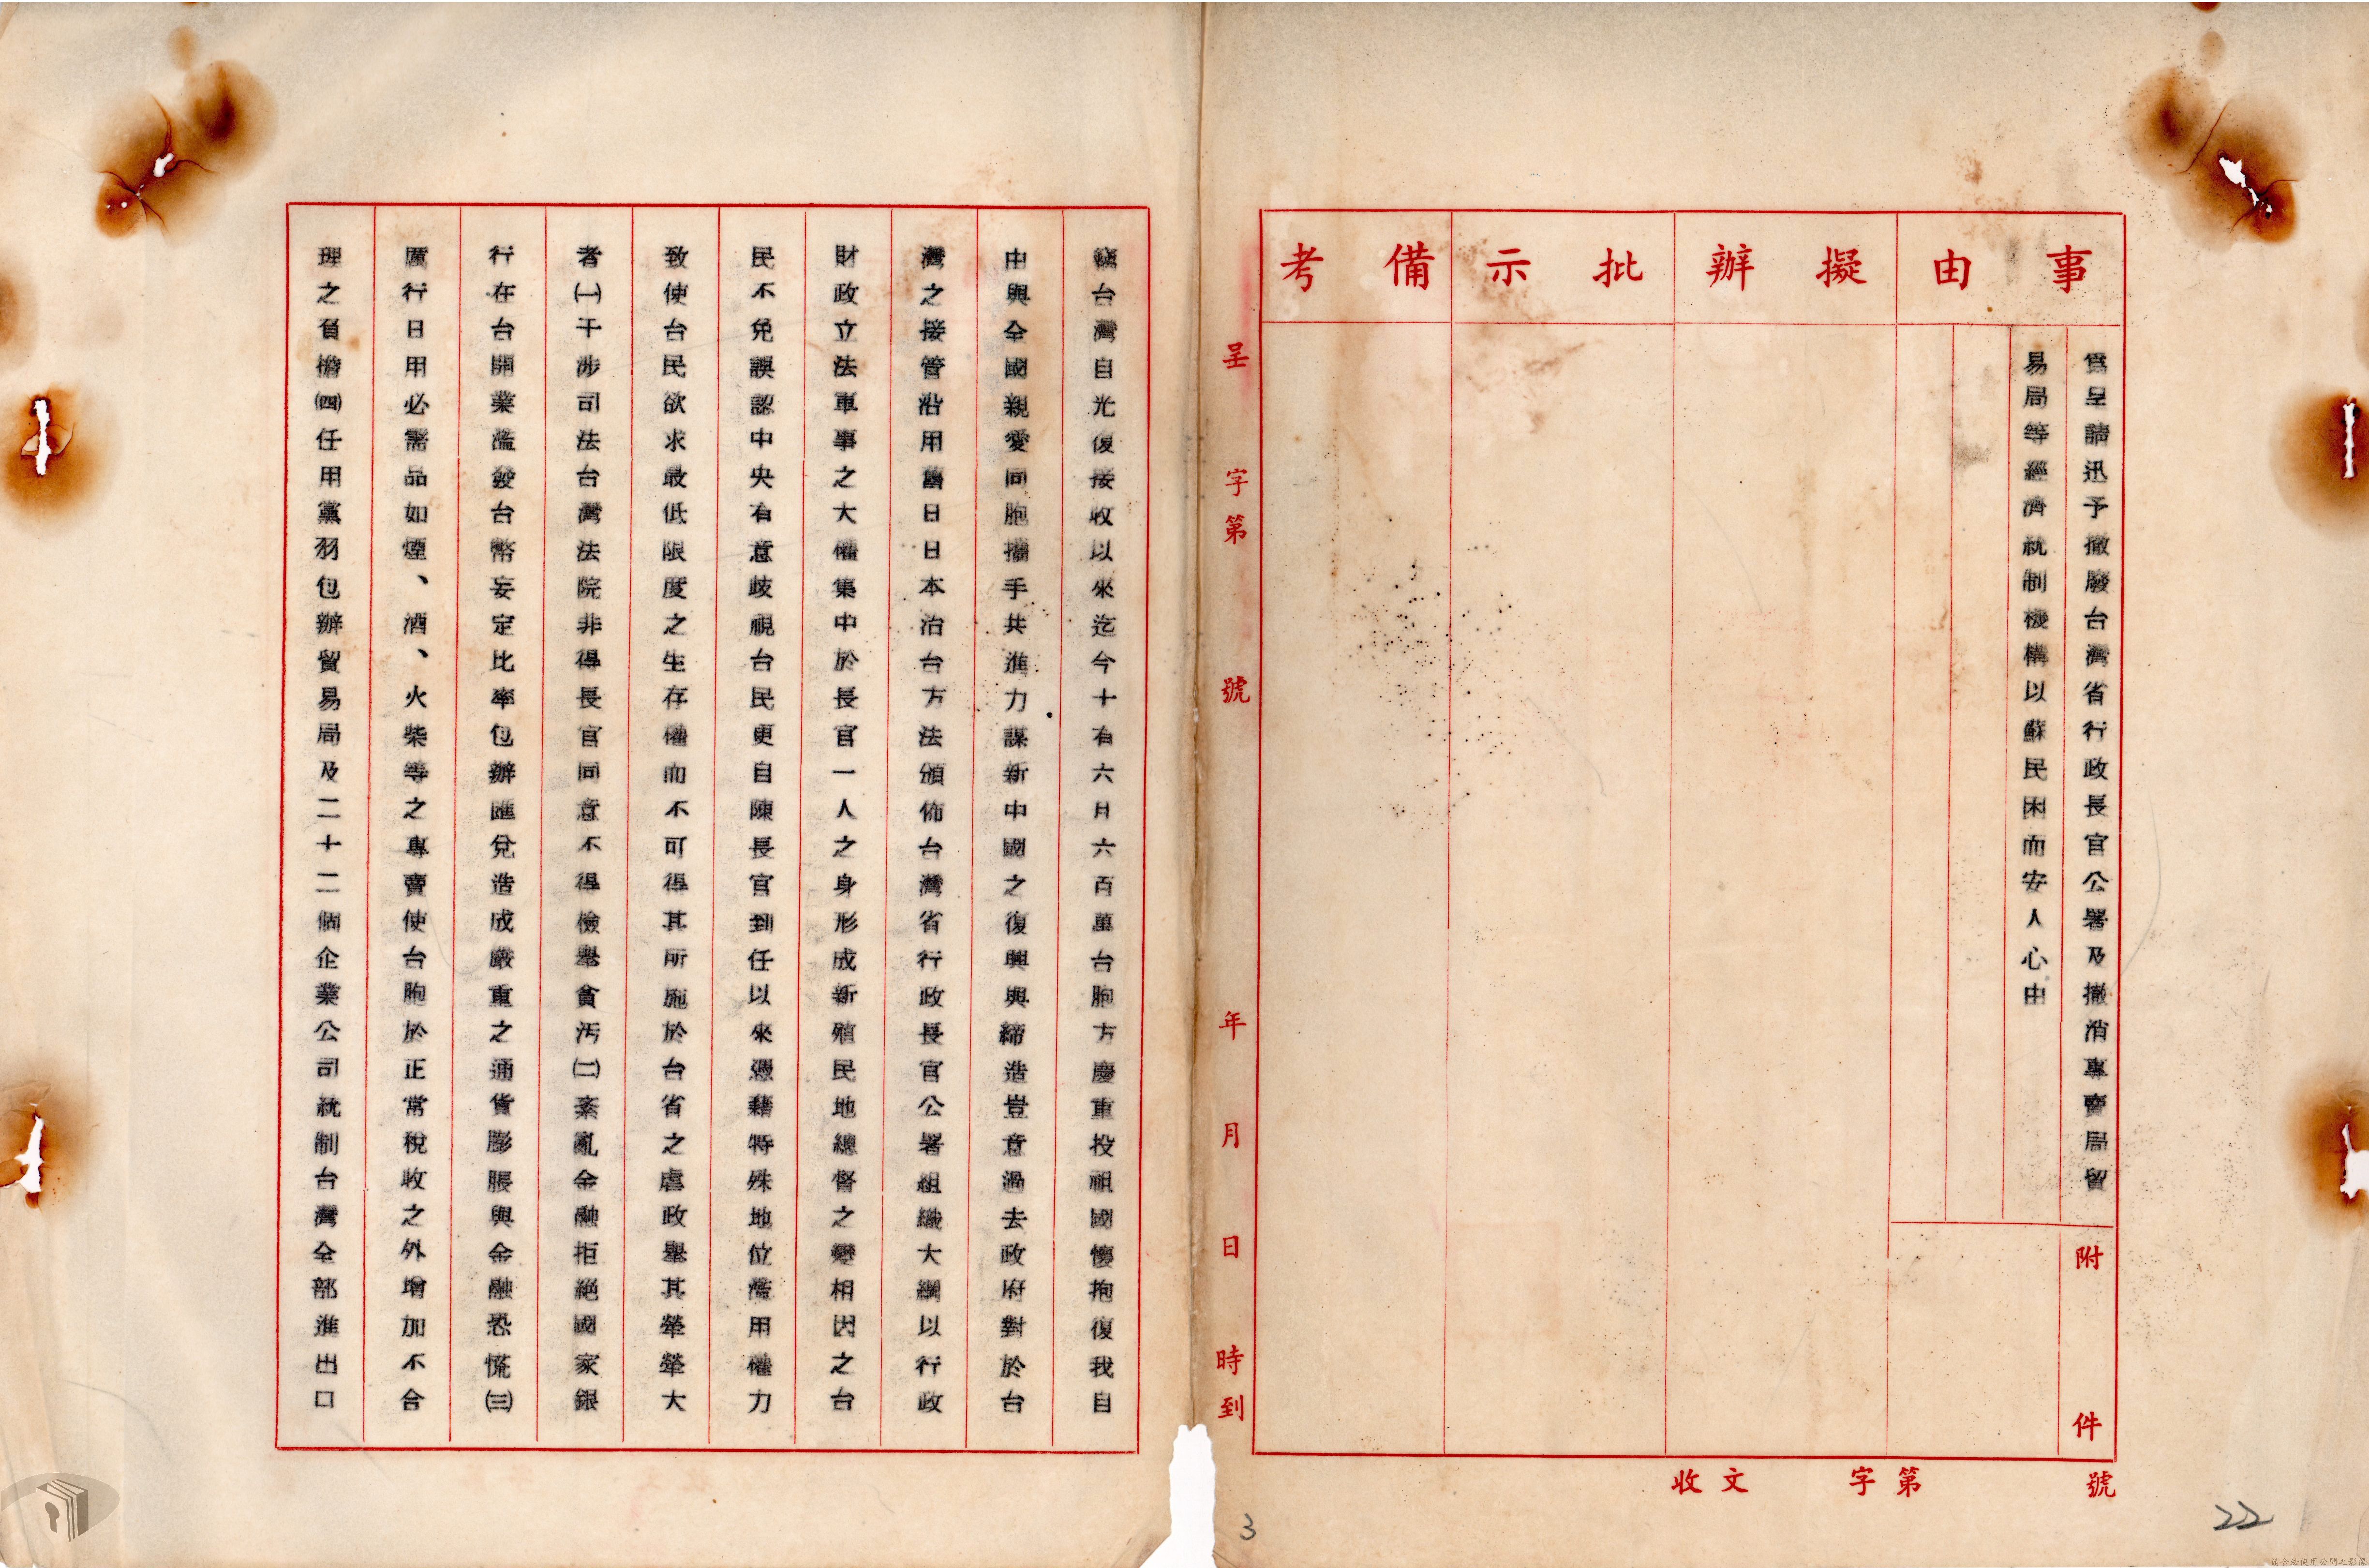 事由
擬辦
批示
備考
為呈請迅予撤廢台灣省行政長官公署及撤消專賣局貿
易局等經濟統制機構以蘇民困而安人心由
附件
呈字第號
年月日時到
收文字第號
竊台灣自光復接收以來迄今十有六月六百萬台胞方慶重投祖國懷抱復我自
由與全國親愛同胞攜手共進力謀新中國之復興與締造豈意過去政府對於台
灣之接管沿用舊日日本治台方法頒佈台灣省行政長官公署組織大綱以行政
財政立法軍事之大權集中於長官一人之身形成新殖民地總督之變相因之台
民不免誤認中央有意歧視台民更自陳長官到任以來憑藉特殊地位濫用權力
致使台民欲求最低限度之生存權而不可得其所施於台省之虐政舉其犖犖大
者㈠干涉司法台灣法院非得長官同意不得檢舉貪污㈡紊亂金融拒絕國家銀
行在台開業濫發台幣妄定比率包辦匯兌造成嚴重之通貨膨脹與金融恐慌㈢
厲行日用必需品如煙、酒、火柴等之專賣使台胞於正常稅收之外增加不合
理之負擔㈣任用黨羽包辦貿易局及二十二個企業公司統制台灣全部進出口
3
22
請合法使用公開之影像